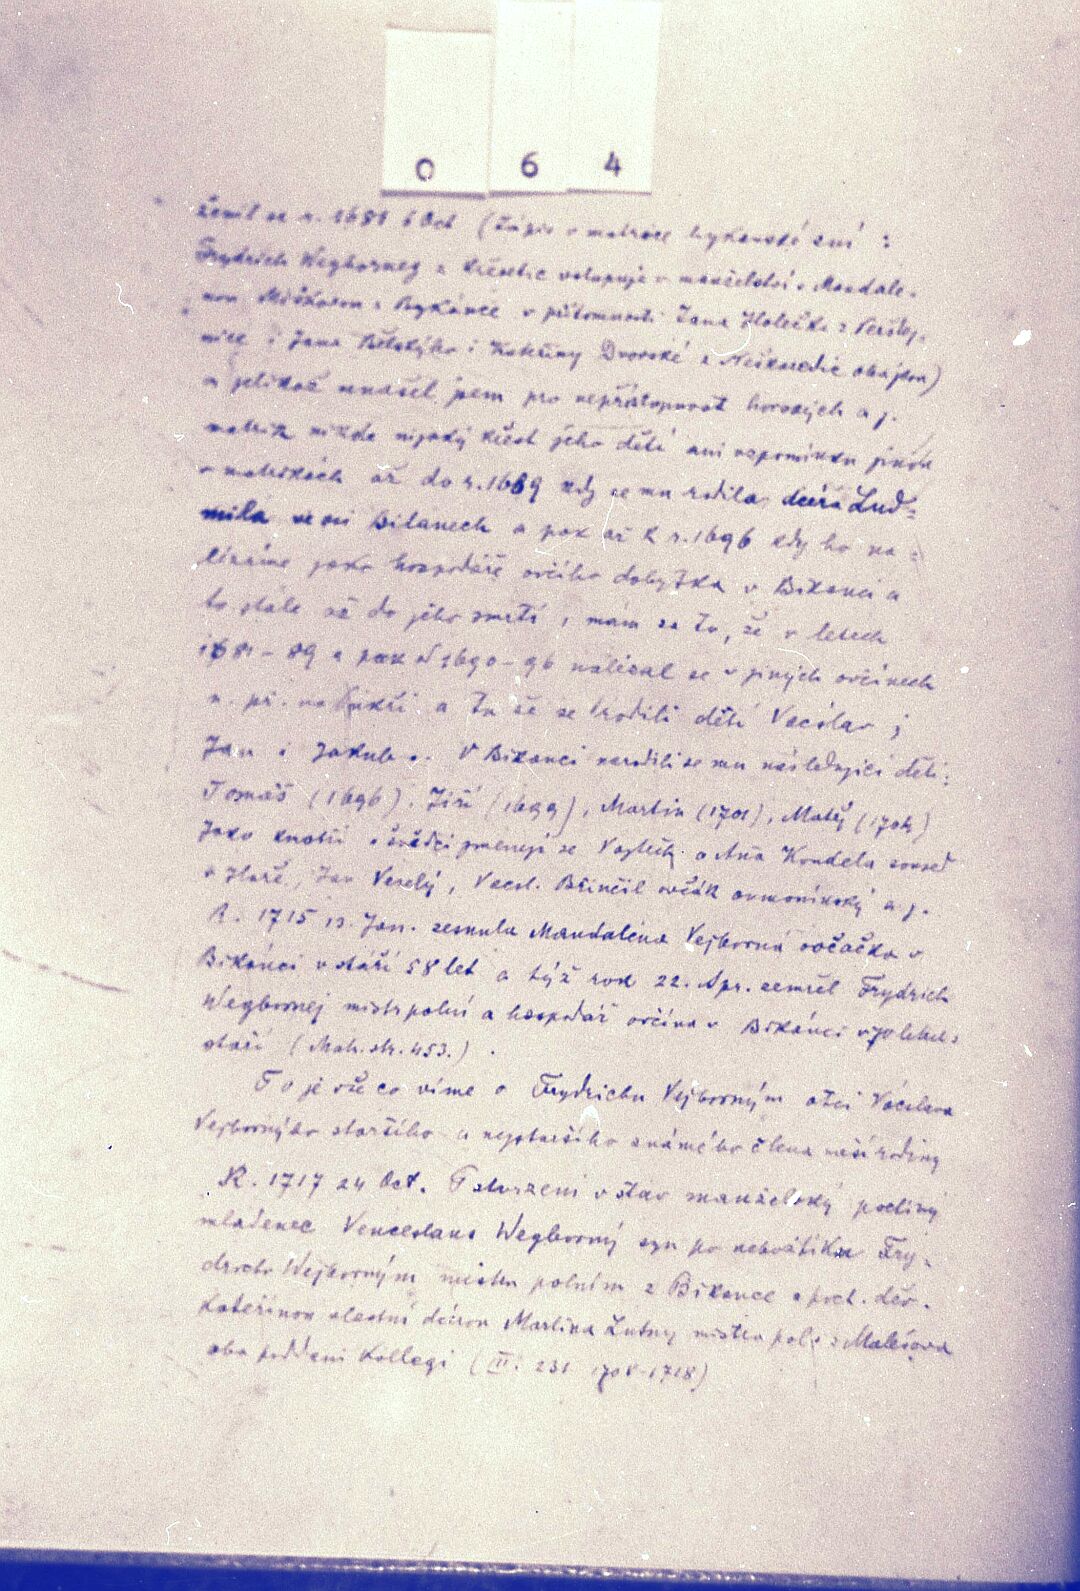 0 6 4
Ženil se r. 1681 6 Oct (Zápis v matrice bykanské zní :
Frydrich Wegborney z vstupuje v manželství s Mandale-
nou z Bykánce v přítomnosti Jana Holečka z
i Jana i Kateřiny Dvorské z Neškaredic oba jsou)
a jelikož nenašel jsem pro nepřístupnost a j.
matrik nikde nijaký křest jeho dětí ani vzpomínku jinou
v matrikách až do r. 1689 kdy se mu rodila dcera Lud-
mila ve vsi Bilanech a pak až k r. 1696 kdy ho na-
lézáme jako hospodáře ovčího dobytka v Bikanci a
to stále až do jeho smrti, mám za to, že v letech
1681-89 a pak od 1690-96 nalézal se v jiných ovčínech
n. př. na a tu že se zrodili děti Vacslav ;
Jan a Jakub. V Bikanci narodili se mu následující děti:
Tomáš (1696), Jiří (1699), Martin (1701), Matěj (1704)
Jako kmotři a svědci jmenují se Vojtěch a Aña Kondela soused
Jan Veselý, Vacsl. Břinčil ovčák a j.
R. 1715 13. Jan. zesnula Mandaléna Vejborná ovčačka v
Bikánci v stáří 58 let a týž rok 22. Apr. zemřel Frydrich
Wegbornej mistr polní a hospodář ovčína v Bikánci v 70 letech
stáří (Mat. str. 453.) .
To je vše co víme o Frydrichu Vejborným otci Václava
Vejborného staršího a nejstaršího známého člena naší rodiny
R. 1717 24 Oct. Potvrzeni v stav manželský poctivý
mládenec Venceslaus Wegborný syn po nebožtíku Fry-
drichu Wejborným mistru polním z Bikance s poct. děv.
Kateřinou vlastní dcerou Martina Lutny mistra pol. z Malešova
oba poddaní Kollegi (III. 231 1708-1718)